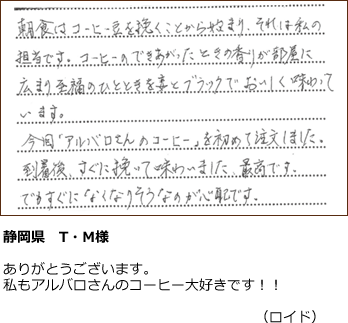 朝食はコーヒー豆を挽くことから始まり、それは私の
担当です。コーヒーのできあがったときの香りが部屋に
広まり至福のひとときを妻とブラックでおいしく味わって
います。
今回「アルバロさんのコーヒー」を初めて注文しました。
到着後、すぐに挽いて味わいました、最高です。
でもすぐになくなりそうなのが心配です。
静岡県　T・M様
ありがとうございます。
私もアルバロさんのコーヒー大好きです！！
（ロイド）